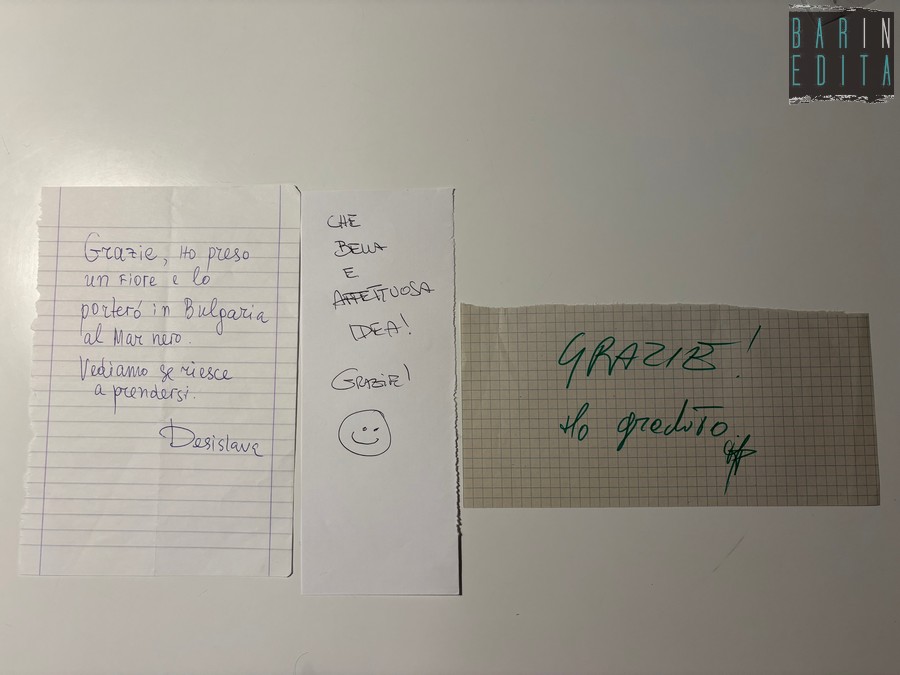 BARIN
EDITA
Grazie, Ho preso
un Fiore e lo
porterò in Bulgaria
al Mar nero.
Vediamo se riesce
a prendersi.
Desislava
CHE
BELLA
E
AFFETTUOSA
IDEA!
GRAZIE!
GRAZIE!
Ho gradito